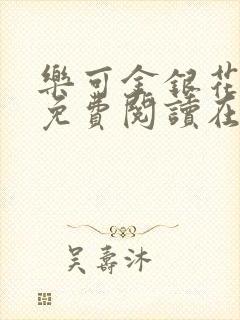 樂可金銀花
免費閱讀在
吳壽沐